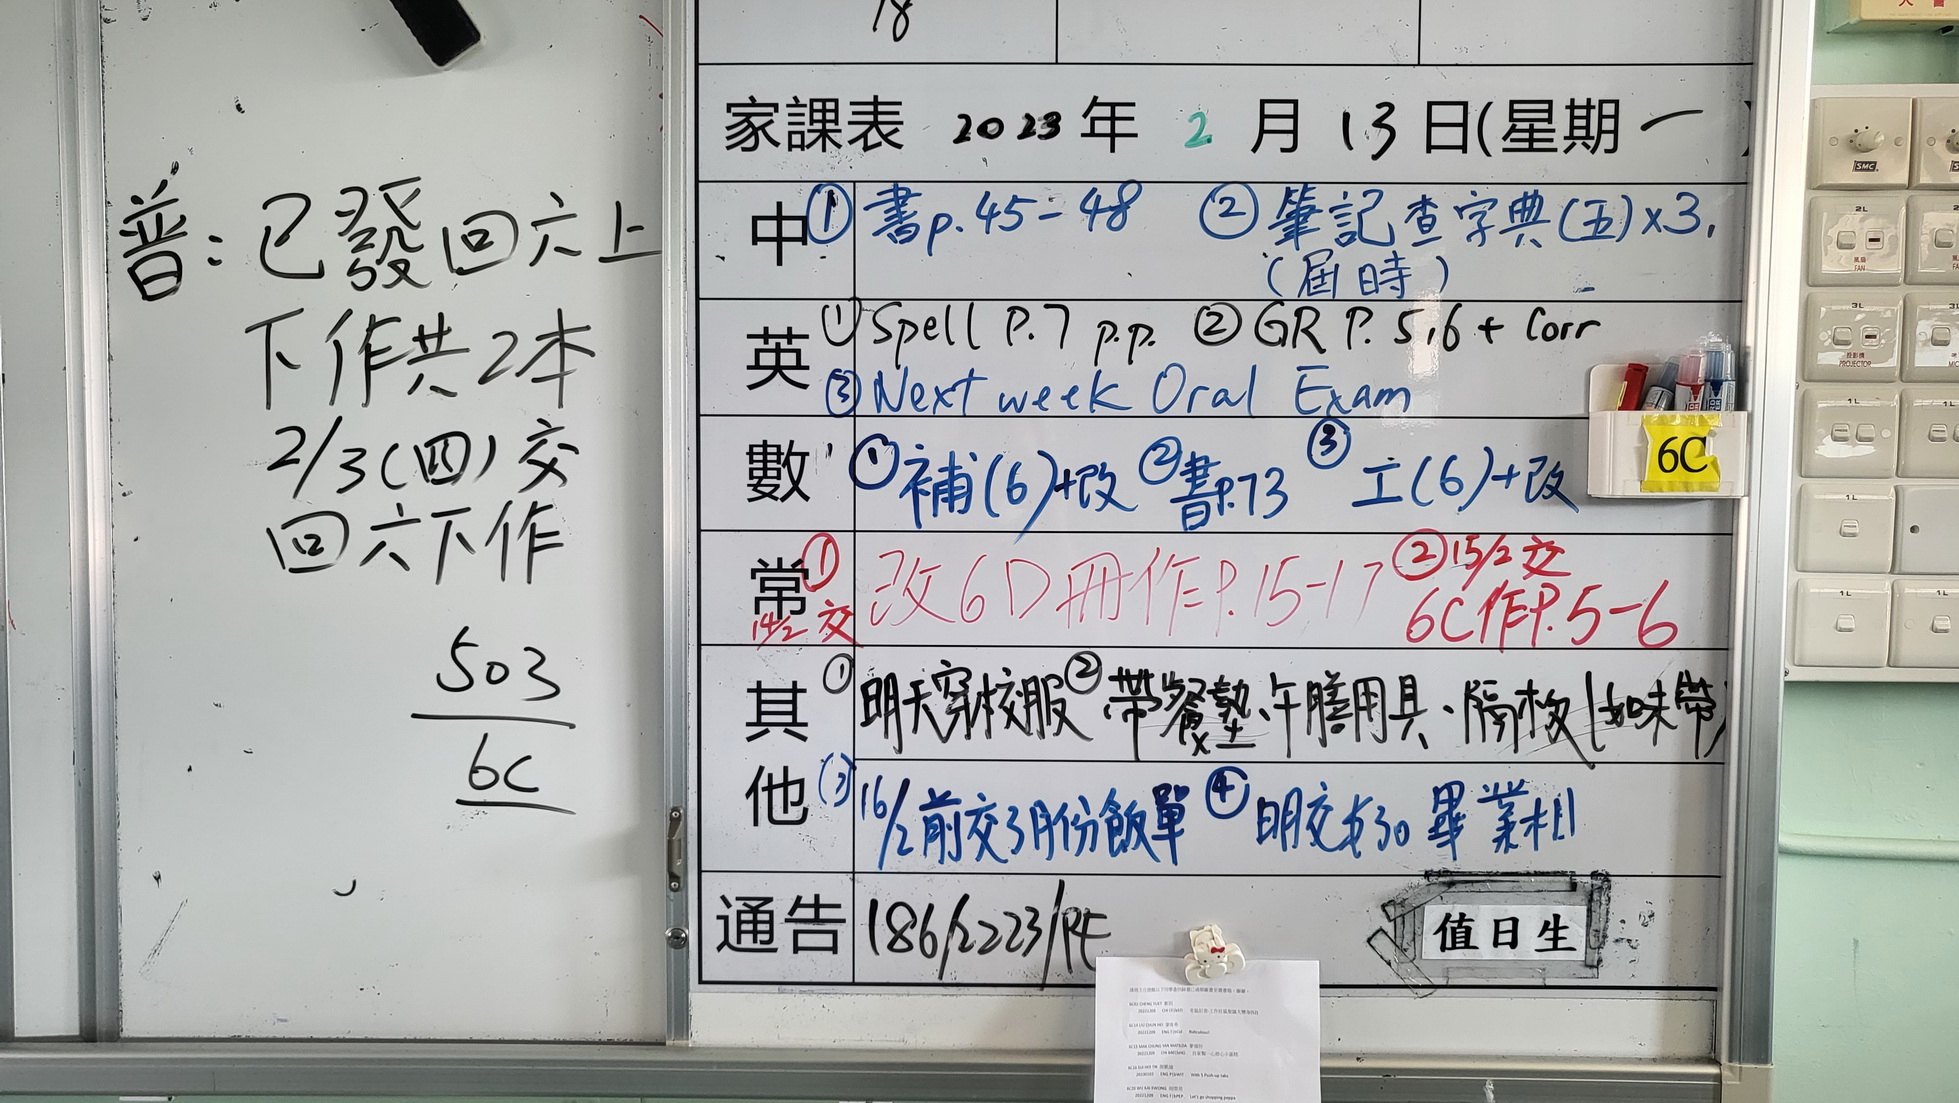 18
家課表 2023 年 2 月 13 日(星期一)
中 ① 書p.45-48 ② 筆記查字典(五)x3,
(屆時)
英 ① Spell P.7 p.p. ② GR P. 5,6 + Corr
③ Next week Oral Exam
數 ① 補(6)+改 ② 書P.73 ③ 工(6)+改
常 ① 改6D冊作P.15-17 ② 15/2交
14/2 交 6C作P.5-6
其他 ① 明天穿校服 ② 帶餐墊、午膳用具、隔板(如味帶)
(3) 16/2前交3月份飯單 ④ 明交$30 畢業相
通告 186/2223/RE
值日生
普: 已發回六上
下作共2本
2/3(四)交
回六下作
503
6C
6C
SMC
2L
風扇
FAN
3L
投影機
PROJECTOR
3L
1L
1L
1L
1L
1L